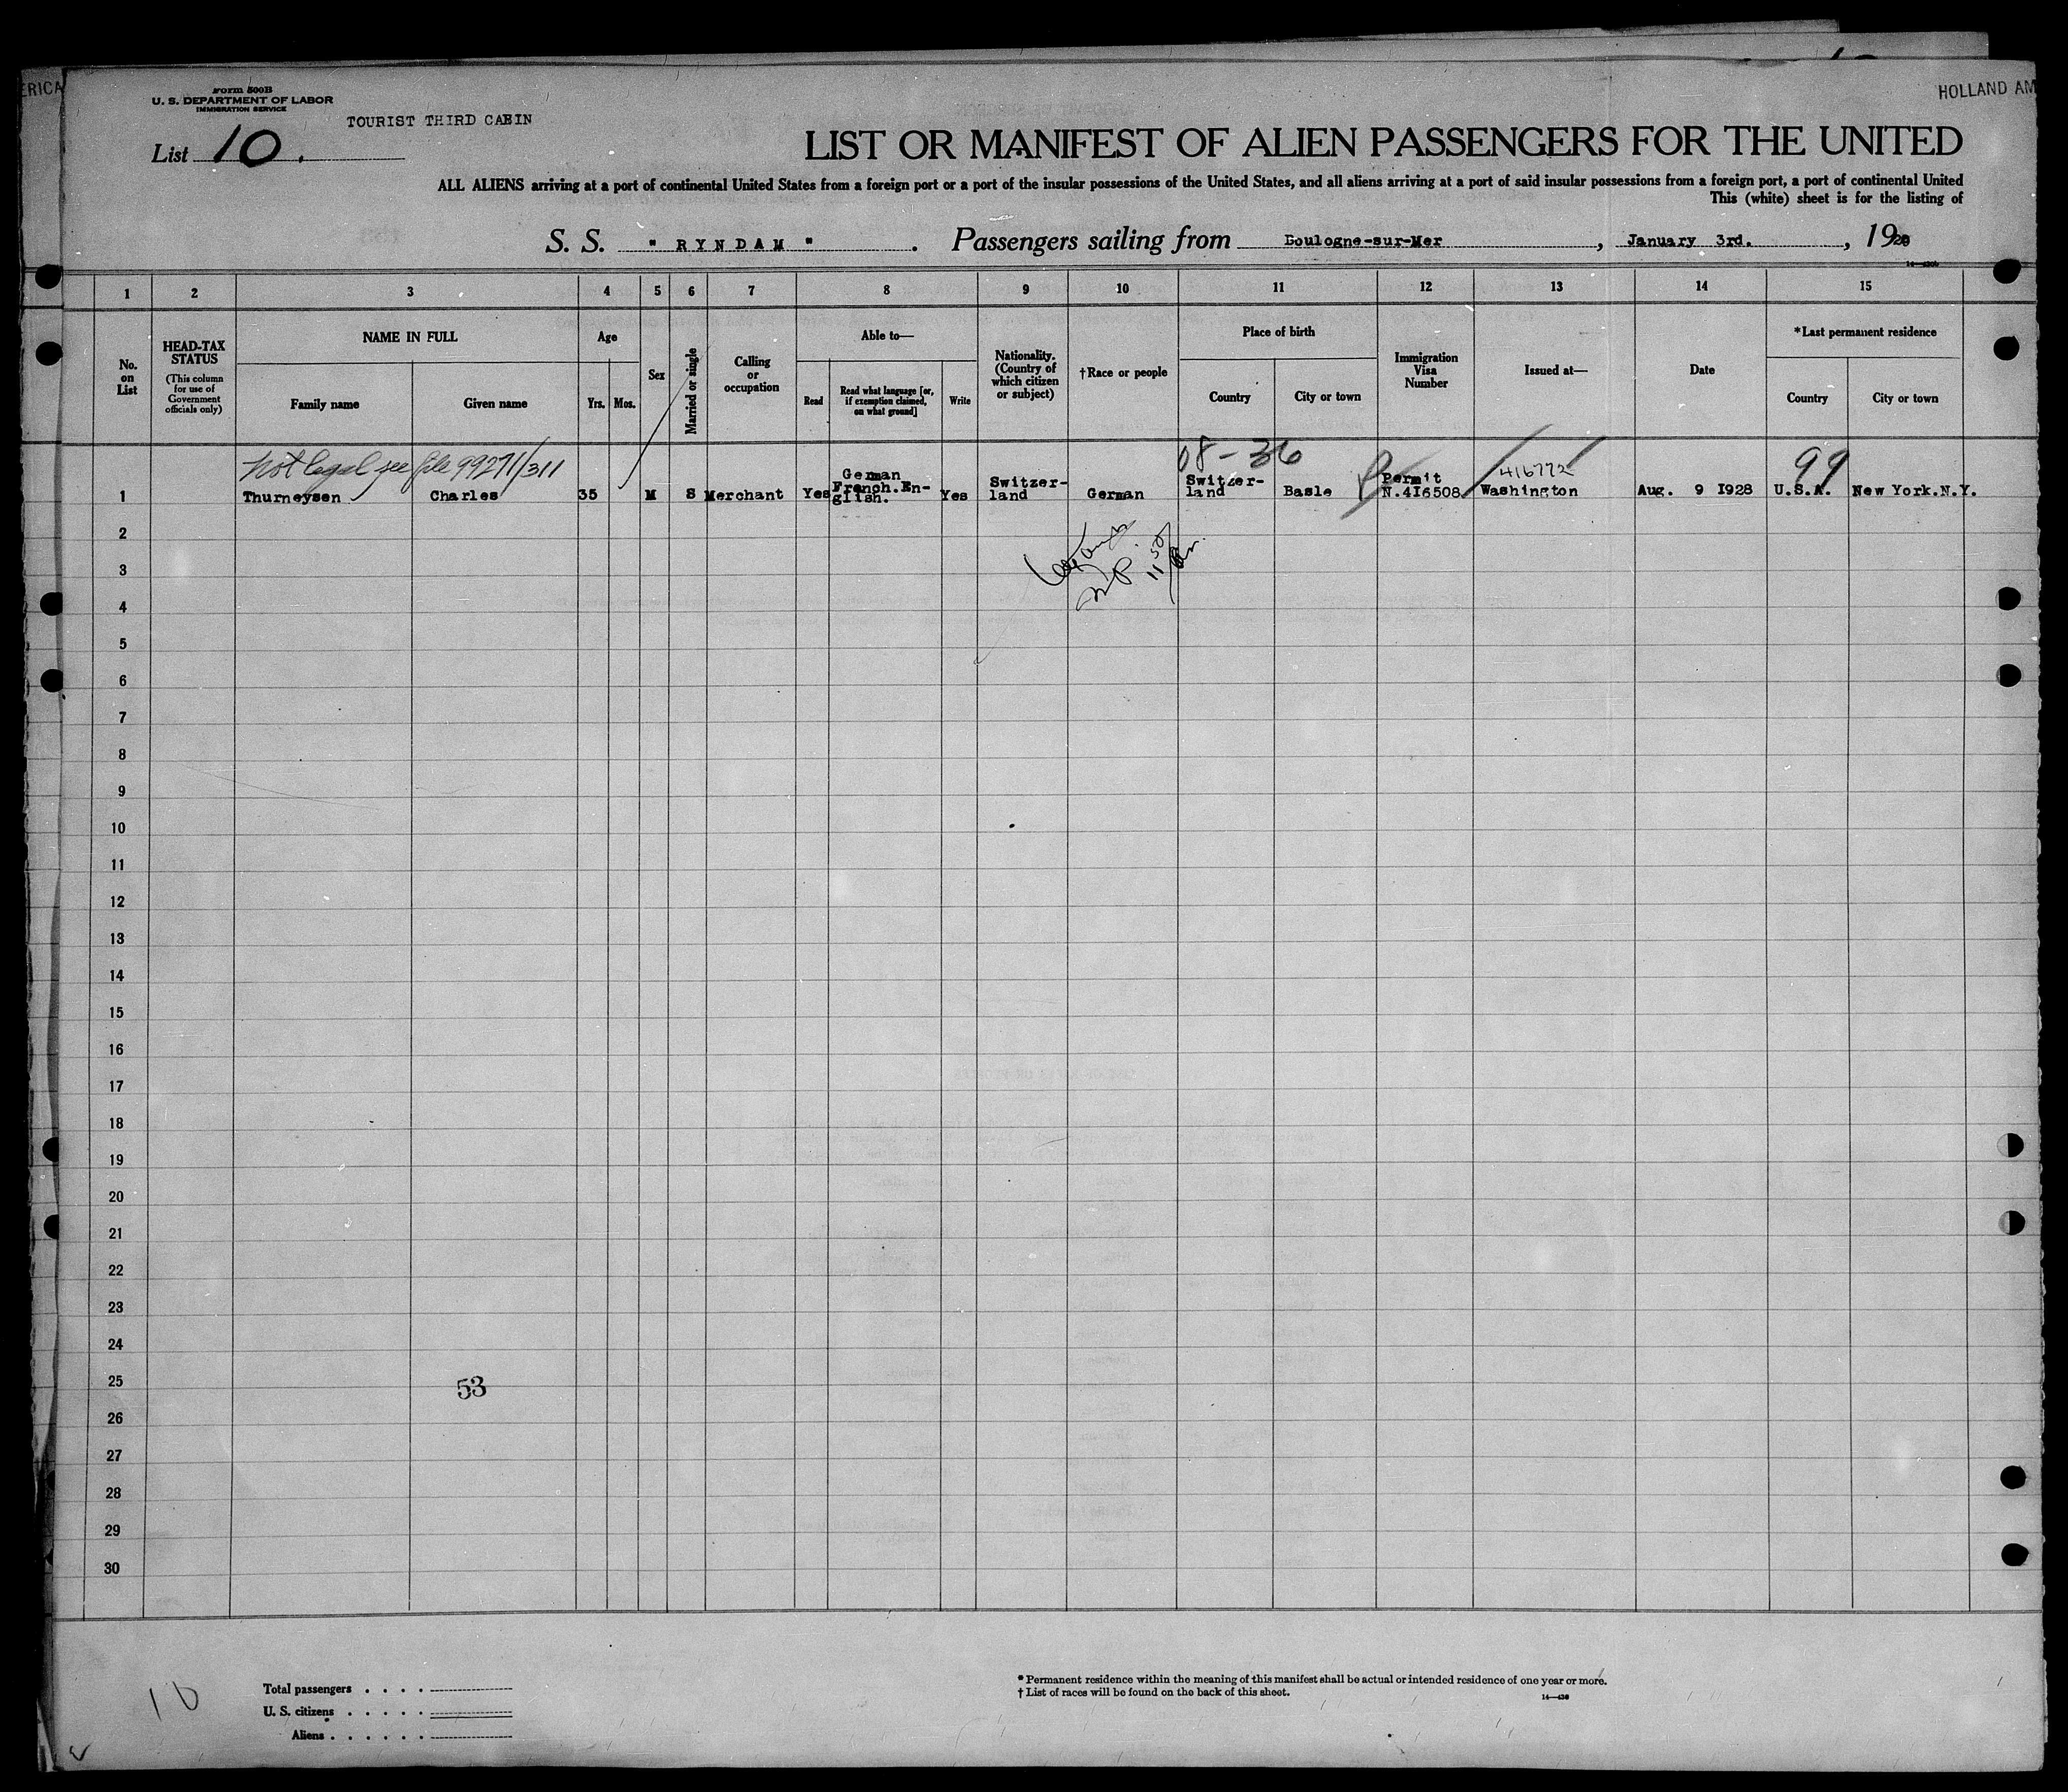 ERICA
HOLLAND AM
Form 500B
U. S. DEPARTMENT OF LABOR
IMMIGRATION SERVICE
TOURIST THIRD CABIN
List 10.
LIST OR MANIFEST OF ALIEN PASSENGERS FOR THE UNITED
ALL ALIENS arriving at a port of continental United States from a foreign port or a port of the insular possessions of the United States, and all aliens arriving at a port of said insular possessions from a foreign port, a port of continental United
This (white) sheet is for the listing of
S. S. " RYNDAM ". Passengers sailing from Boulogne-sur-Mer, January 3rd., 19
1 2 3 4 5 6 7 8 9 10 11 12 13 14 15
No. on List
HEAD-TAX STATUS
(This column for use of Government officials only)
NAME IN FULL
Family name
Given name
Age
Yrs. Mos.
Sex
Married or single
Calling or occupation
Able to—
Read
Read what language [or, if exemption claimed, on what ground]
Write
Nationality. (Country of which citizen or subject)
†Race or people
Place of birth
Country
City or town
Immigration Visa Number
Issued at—
Date
*Last permanent residence
Country
City or town
not legal see file 99271/311
08-36
416772
99
1 Thurneysen Charles 35 M S Merchant Yes German French.En-glish. Yes Switzer-land German Switzer-land Basle Permit N.416508 Washington Aug. 9 1928 U.S.A. New York.N.Y.
2
3
4
5
6
7
8
9
10
11
12
13
14
15
16
17
18
19
20
21
22
23
24
25
53
26
27
28
29
30
10
Total passengers . . . .
U. S. citizens . . . . .
Aliens . . . . . .
* Permanent residence within the meaning of this manifest shall be actual or intended residence of one year or more.
† List of races will be found on the back of this sheet.
14—430